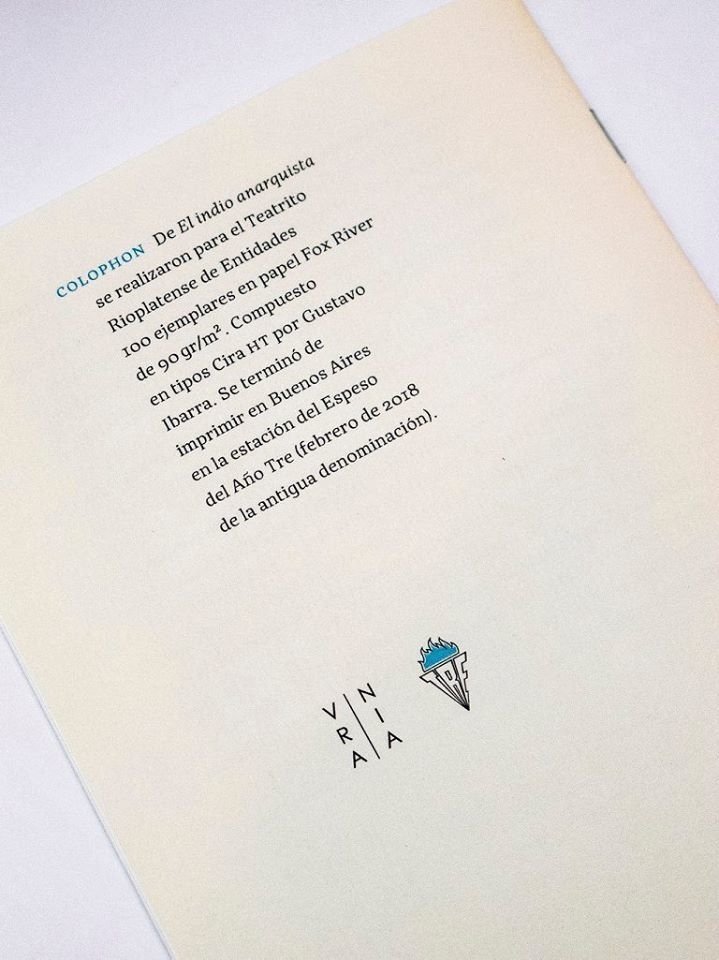 COLOPHON De El indio anarquista
se realizaron para el Teatrito
Rioplatense de Entidades
100 ejemplares en papel Fox River
de 90 gr/m². Compuesto
en tipos Cira HT por Gustavo
Ibarra. Se terminó de
imprimir en Buenos Aires
en la estación del Espeso
del Año Tre (febrero de 2018
de la antigua denominación).
V N
R I
A A
TRE